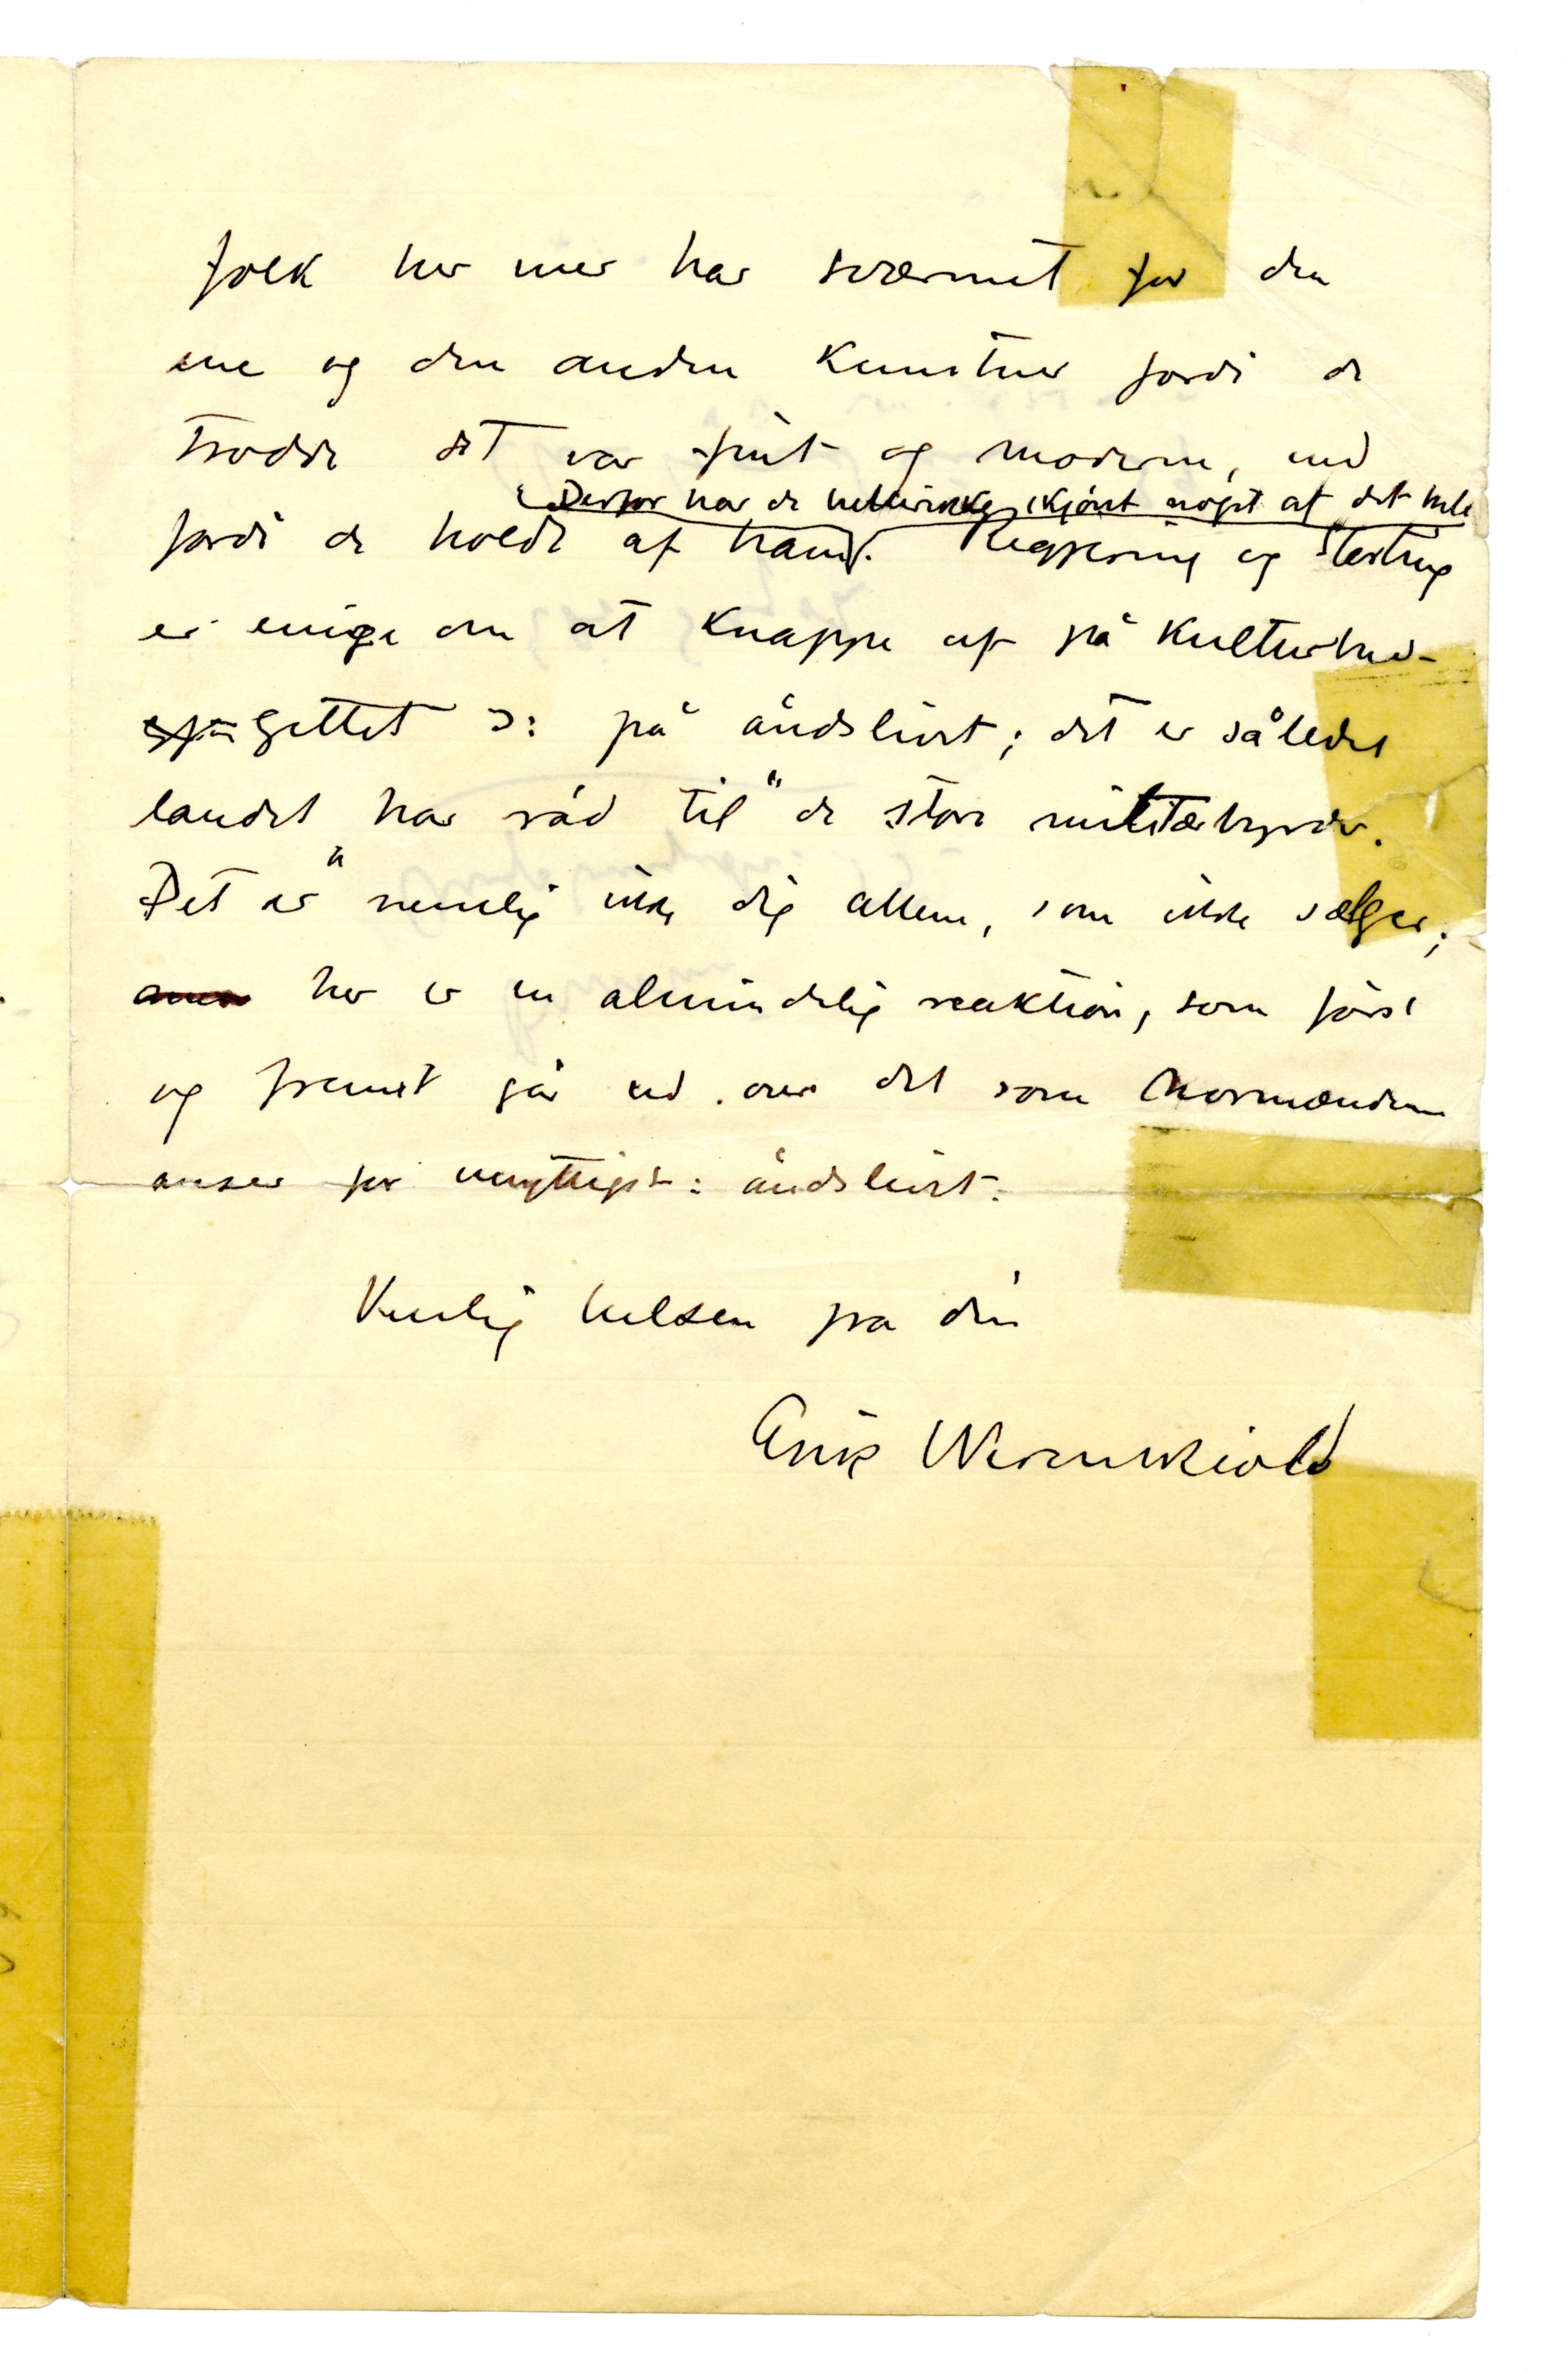 folk her mer har sværmet for den
ene og den anden kunstner fordi de
trodde det var fint og moderne, end
Derfor har de heller ikke skjønt noget af det hele
fordi de holdt af ham. Regjering og Storting
er enige om at knappe af på kulturbud-
gettet ɔ: på åndslivet; det er således
landet har råd til" de store militærbyrder.
Det er" nemlig ikke dig allene, som ikke sælger;
her er en almindelig reaktion, som først
og fremst går ud over det som Normændene
anser for unyttigst: åndslivet.
Venlig hilsen fra din
Erik Werenskiold